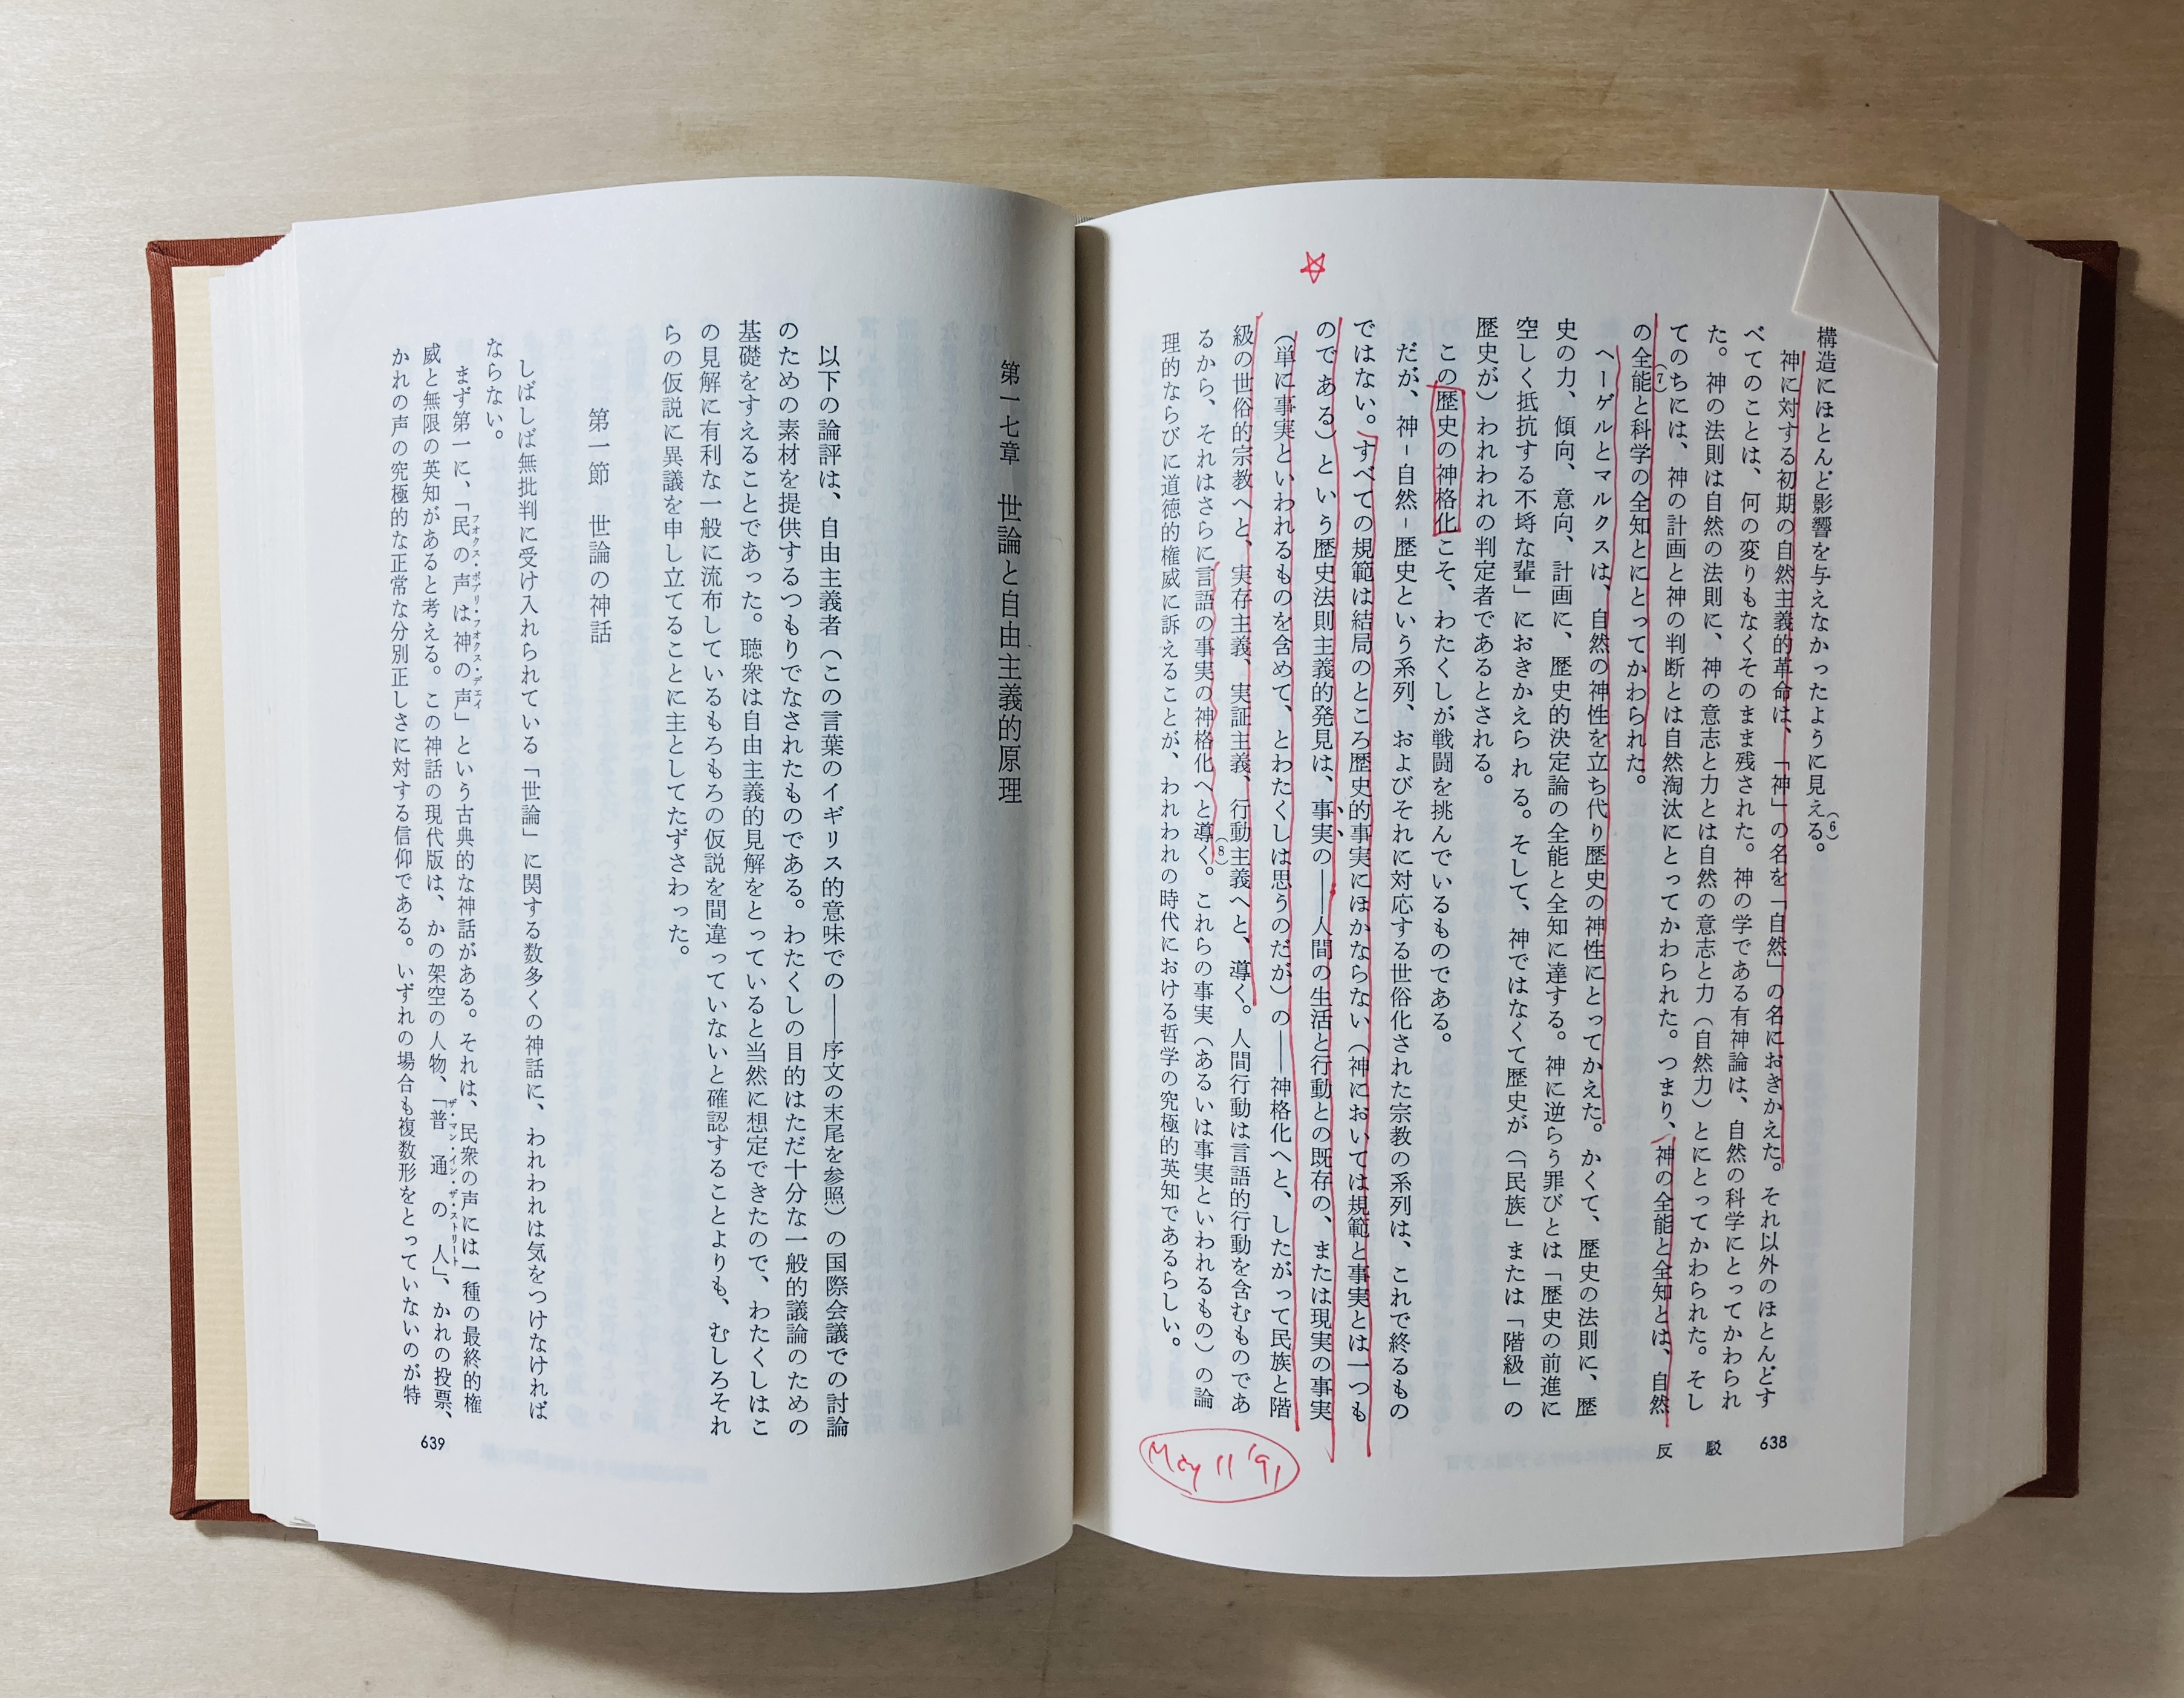 構造にほとんど影響を与えなかったように見える。(6)
神に対する初期の自然主義的革命は、「神」の名を「自然」の名におきかえた。それ以外のほとんどす
べてのことは、何の変りもなくそのまま残された。神の学である有神論は、自然の科学にとってかわられ
た。神の法則は自然の法則に、神の意志と力とは自然の意志と力(自然力)とにとってかわられた。そし
てのちには、神の計画と神の判断とは自然淘汰にとってかわられた。つまり、神の全能と全知とは、自然
の全能と科学の全知とにとってかわられた。(7)
ヘーゲルとマルクスは、自然の神性を立ち代り歴史の神性にとってかえた。かくて、歴史の法則に、歴
史の力、傾向、意向、計画に、歴史的決定論の全能と全知に達する。神に逆らう罪びとは「歴史の前進に
空しく抵抗する不埒な輩」におきかえられる。そして、神ではなくて歴史が(「民族」または「階級」の
歴史が)われわれの判定者であるとされる。
この歴史の神格化こそ、わたくしが戦闘を挑んでいるものである。
だが、神-自然-歴史という系列、およびそれに対応する世俗化された宗教の系列は、これで終るもの
ではない。すべての規範は結局のところ歴史的事実にほかならない(神においては規範と事実とは一つも
のである)という歴史法則主義的発見は、事実の——人間の生活と行動との既存の、または現実の事実
(単に事実といわれるものを含めて、とわたくしは思うのだが)の——神格化へと、したがって民族と階
級の世俗的宗教へと、実存主義、実証主義、行動主義へと、導く。人間行動は言語的行動を含むものであ
るから、それはさらに言語の事実の神格化へと導く。(8)これらの事実(あるいは事実といわれるもの)の論
理的ならびに道徳的権威に訴えることが、われわれの時代における哲学の究極的英知であるらしい。
反駁 638
May 11 '91
第一七章 世論と自由主義的原理
以下の論評は、自由主義者(この言葉のイギリス的意味での——序文の末尾を参照)の国際会議での討論
のための素材を提供するつもりでなされたものである。わたくしの目的はただ十分な一般的議論のための
基礎をすえることであった。聴衆は自由主義的見解をとっていると当然に想定できたので、わたくしはこ
の見解に有利な一般に流布しているもろもろの仮説を間違っていないと確認することよりも、むしろそれ
らの仮説に異議を申し立てることに主としてたずさわった。
第一節 世論の神話
しばしば無批判に受け入れられている「世論」に関する数多くの神話に、われわれは気をつけなければ
ならない。
まず第一に、「民の声は神の声」フオクス・ポプリ・フオクス・デエイという古典的な神話がある。それは、民衆の声には一種の最終的権
威と無限の英知があると考える。この神話の現代版は、かの架空の人物、「普通の人」ザ・マン・イン・ザ・ストリート、かれの投票、
かれの声の究極的な正常な分別正しさに対する信仰である。いずれの場合も複数形をとっていないのが特
639